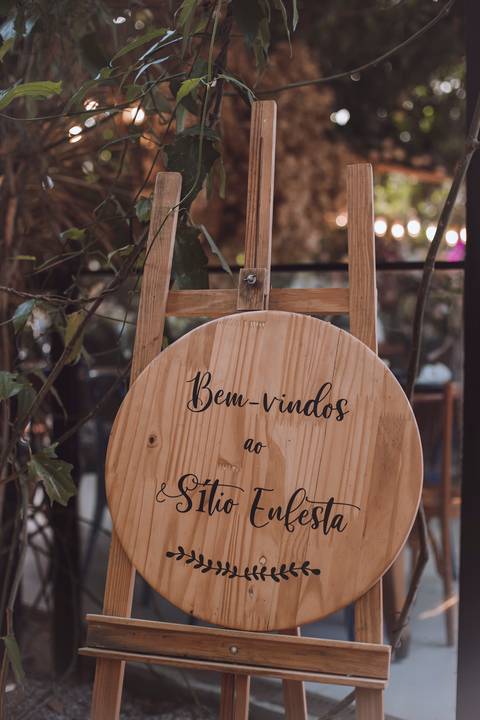 Bem-vindos
ao
Sítio Enfesta